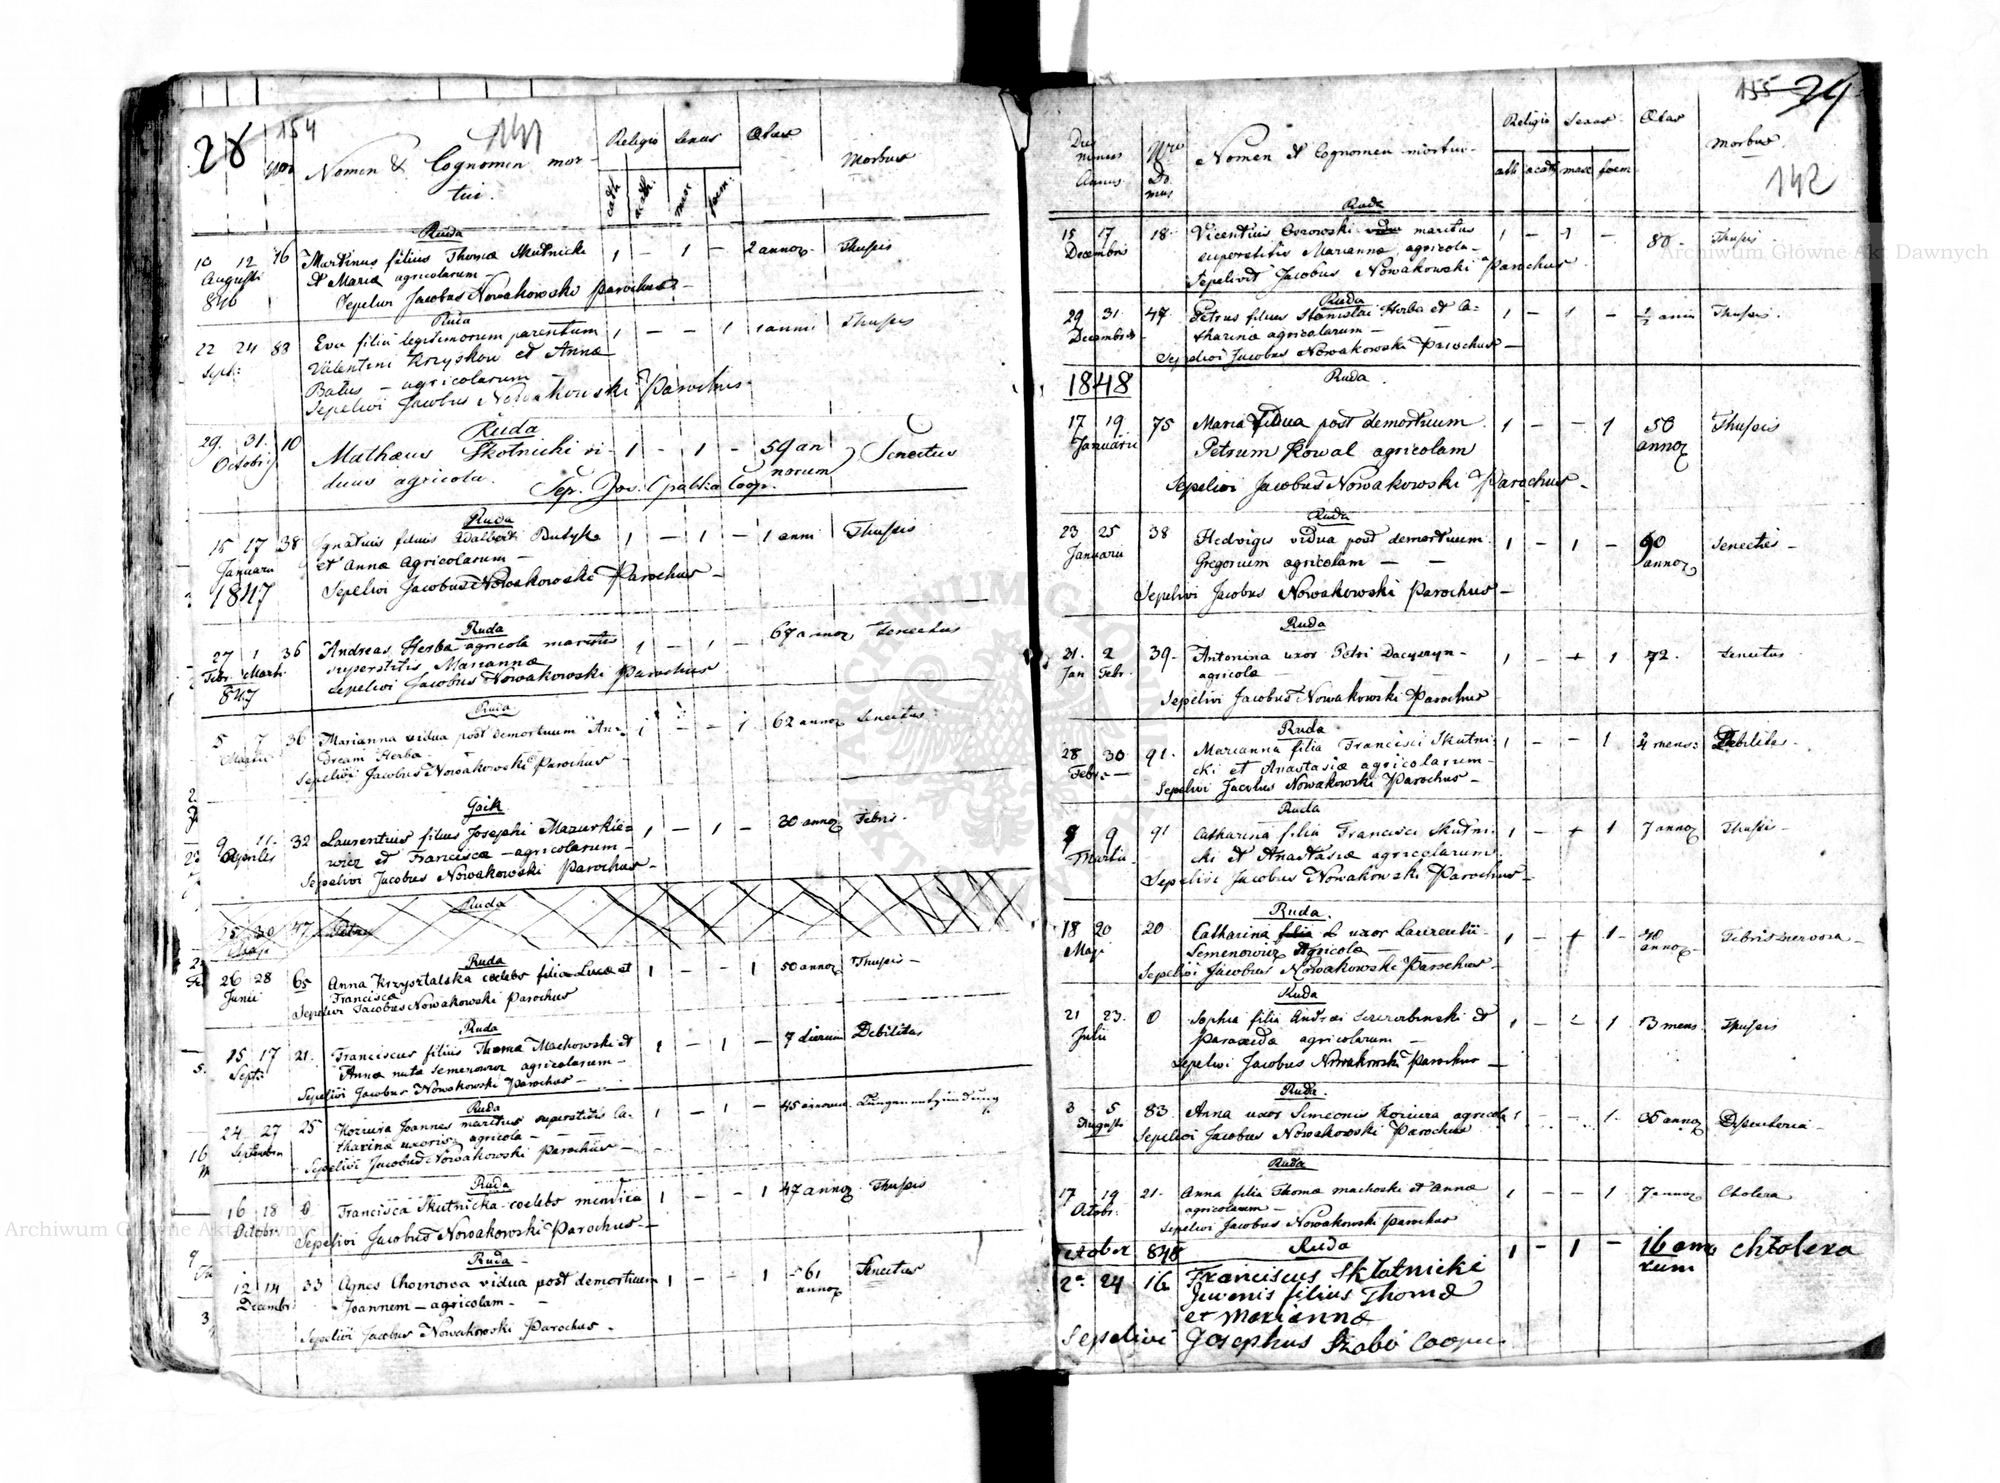 28 154 141
Nro Nomen & Cognomen mor-
tui.
Religio Sexus Ætas Morbus
cath. acath. masc foem:
Ruda
10 12 76 Martinus filius Thomæ Skutnicki 1 – 1 – 2 annor. Thusis
Augusti et Maria agricolarum –
846 Sepelivi Jacobus Nowakowski parochus –
Ruda
22 24 83 Eva filia legitimorum parentum 1 – – 1 1 anni Thusis
Sept: Valentini Krzyskow et Annæ
Batus – agricolarum –
Sepelivi Jacobus Nowakowski Parochus
Ruda
29. 31. 10 Mathæus Skotnicki vi- 1 – 1 – 59 an Senectus
Octobris duus agricola. norum
Sep. Jos. Opalka Coop.
Ruda
15 17 38 Ignatius filius Adalberti Dutyka 1 – 1 – 1 anni Thusis
Januarii et Annæ agricolarum –
1847 Sepelivi Jacobus Nowakowski Parochus –
Ruda
27 1 36 Andreas Herba agricola maritus 1 – 1 – 67 annor Senectus
Febr. Marti. superstitis Mariannæ
847 Sepelivi Jacobus Nowakowski Parochus
Ruda
5 7 36 Marianna vidua post demortuum An= 1 – 1 62 annor Senectus
Martii dream Herba
Sepelivi Jacobus Nowakowski Parochus –
Gaik
9 11. 32 Laurentius filius Josephi Mazurkie= 1 – 1 – 30 annor Febris.
Aprilis wicz et Francisca – agricolarum –
Sepelivi Jacobus Nowakowski Parochus –
Ruda
15 30 47 Petrus
Ruda
26 28 65 Anna Krzysztalska coelebs filia Lucæ et 1 – – 1 50 annor Thusis –
Junii Francisca
Sepelivi Jacobus Nowakowski Parochus
Ruda
15 17 21. Franciscus filius Thomæ Machowski et 1 – 1 – 7 dierum Debilitas
Sept: Annæ nata Semenowicz agricolarum –
Sepelivi Jacobus Nowakowski Parochus –
Ruda
24 27 25 Koziura Joannes maritus superstitis Ca- 1 – 1 – 45 annorum Lungenentzündung
Septembris tharinæ uxoris agricola –
Sepelivi Jacobus Nowakowski Parochus –
Ruda
16 18 0 Francisca Skutnicka coelebs mendica 1 – – 1 47 annor Thusis
Octobr. Sepelivi Jacobus Nowakowski Parochus –
Ruda
12 14 33 Agnes Chornowa vidua post demortuum 1 – – 1 61 Senectus
Decembr Joannem – agricolam – annor
Sepelivi Jacobus Nowakowski Parochus –
155 29
142
Dies
mensis
Annus
Nro
Do
mus
Nomen et Cognomen mortui-
Religio Sexus Ætas Morbus
cath acath masc foem
Ruda
15 17 18. Vicentius maritus 1 – 1 – 80 – Thusis
Decembris superstitis Marianna agricola –
Sepelivit Jacobus Nowakowski Parochus
Ruda
29 31 47 Petrus filius Stanislai Herba et Ca- 1 – 1 – ½ anni Thusis.
Decembris tharina agricolarum –
Sepelivi Jacobus Nowakowski Parochus –
1848 Ruda.
17 19 75 Maria vidua post demortuum 1 – – 1 50 Thusis
Januarii Petrum Kowal agricolam annor
Sepelivi Jacobus Nowakowski Parochus –
Ruda
23 25 38 Hedvigis vidua post demortuum 1 – 1 – 90 Senectus –
Januarii Gregorium agricolam – – annor
Sepelivi Jacobus Nowakowski parochus –
Ruda
21. 2 39 – Antonina uxor Petri Daczyszyn – 1 – + 1 72. Senectus
Jan Febr. agricola –
Sepelivi Jacobus Nowakowski Parochus
Ruda
28 30 91. Marianna filia Francisci Skutni- 1 – – 1 mens: Debilitas –
Febr. – cki et Anastasiæ agricolarum –
Sepelivi Jacobus Nowakowski Parochus –
Ruda
9 91 Catharina filia Francisci Skutni- 1 – + 1 7 annor Thusis –
Martii cki et Anastasiæ agricolarum
Sepelivi Jacobus Nowakowski Parochus –
Ruda.
18 20 20 Catharina uxor Laurentii – 1 – + 1 – 40 Febris nervosa –
Maji Semenowicz Agricola – annor
Sepelivi Jacobus Nowakowski Parochus –
Ruda
21 23. 0 Sophia filia Andreæ et 1 – – 1 3 mens Thusis
Julii agricolarum –
Sepelivi Jacobus Nowakowski Parochus –
Ruda.
3 5 83. Anna uxor Simeonis Koziura agricola 1 – – 1 – annor Dysenteria –
Augusti Sepelivi Jacobus Nowakowski Parochus
Ruda
17 19 21. Anna filia Thomæ machoski et Annæ 1 – – 1 7 annor Cholera
Octobr. agricolarum –
Sepelivi Jacobus Nowakowski parochus
October 848 Ruda 1 – 1 – 16 anno chtolera
24 16 Franciscus Sklatnicki rum
Juvenis filius Thomæ
et Meriannæ
Sepelivi Josephus Skabo Cooper
Archiwum Główne Akt Dawnych
Archiwum Główne Akt Dawnych